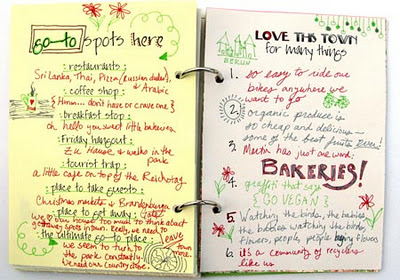 go-to spots here
: restaurants :
Sri Lanka, Thai, Pizza (Russian dudes),
& Arabic.
: coffee shop :
{ Hmm... don't have or crave one }
: breakfast stop :
oh hello you sweet little bakeries.
: Friday hangout :
Zu Hause & walks in the
park
: tourist trap :
a little cafe on top of the Reichstag
: place to take guests :
Christmas markets & Brandenburg
: place to get away :
we our house too much to think about
getaway spots in town. Really, we need to
: the ultimate go-to place :
we seem to turn to
the park constantly.
we need our country close.
leave
town
more.
LOVE THIS TOWN
for many things
BERLIN
1. so easy to ride our
bikes anywhere we
want to go
2. organic produce is
so cheap and delicious –
some of the best fruits ever!
3. Martin has just one word:
BAKERIES!
4. graffiti that say
{ GO VEGAN }
5. Watching the birds, the babies,
the babies watching the birds,
flowers, people, people buying flowers.
6. it's a community of bicycles
like us